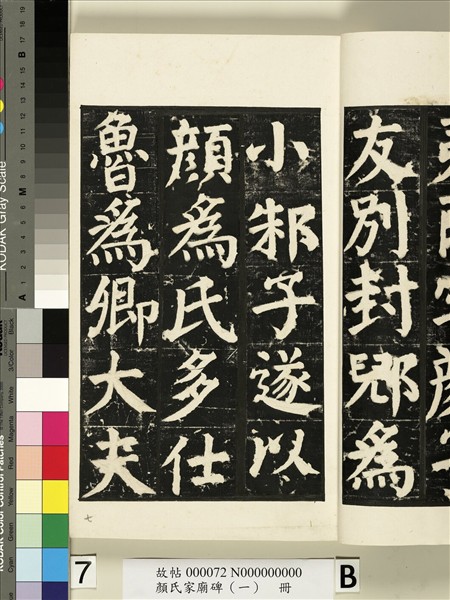 友別封郳爲
小邾子遂以
顏爲氏多仕
魯爲卿大夫
七
KODAK Gray Scale
A 1 2 3 4 5 6 M 8 9 10 11 12 13 14 15 B 17 18 19
KODAK Color Control Patches
Cyan Green Yellow Red Magenta White 3/Color Black
7
故帖 000072 N000000000
顏氏家廟碑（一） 冊
B